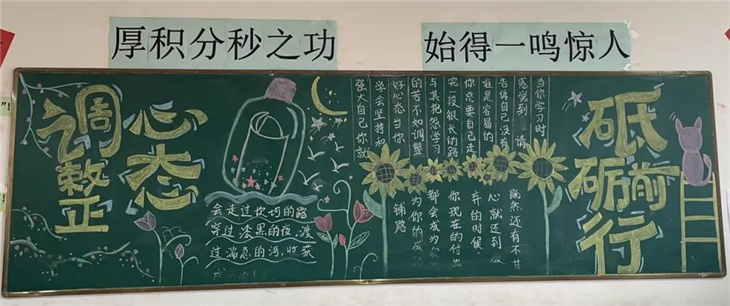 厚积分秒之功
始得一鸣惊人
调整
心态
砥砺前行
当你学习时
感觉到 请
告诉自己没有
谁是容易的
你总要自己走
完一段很长的路
与其抱怨学习
苦不如调整
好心态当你
学会坚持和
强大自己你就
会走过坎坷的路
穿过漆黑的夜,渡
过湍急的河,收获
既然还有不甘
心就还到
弃的时候,
你现在的付出
都会成为你
为你的
铺路